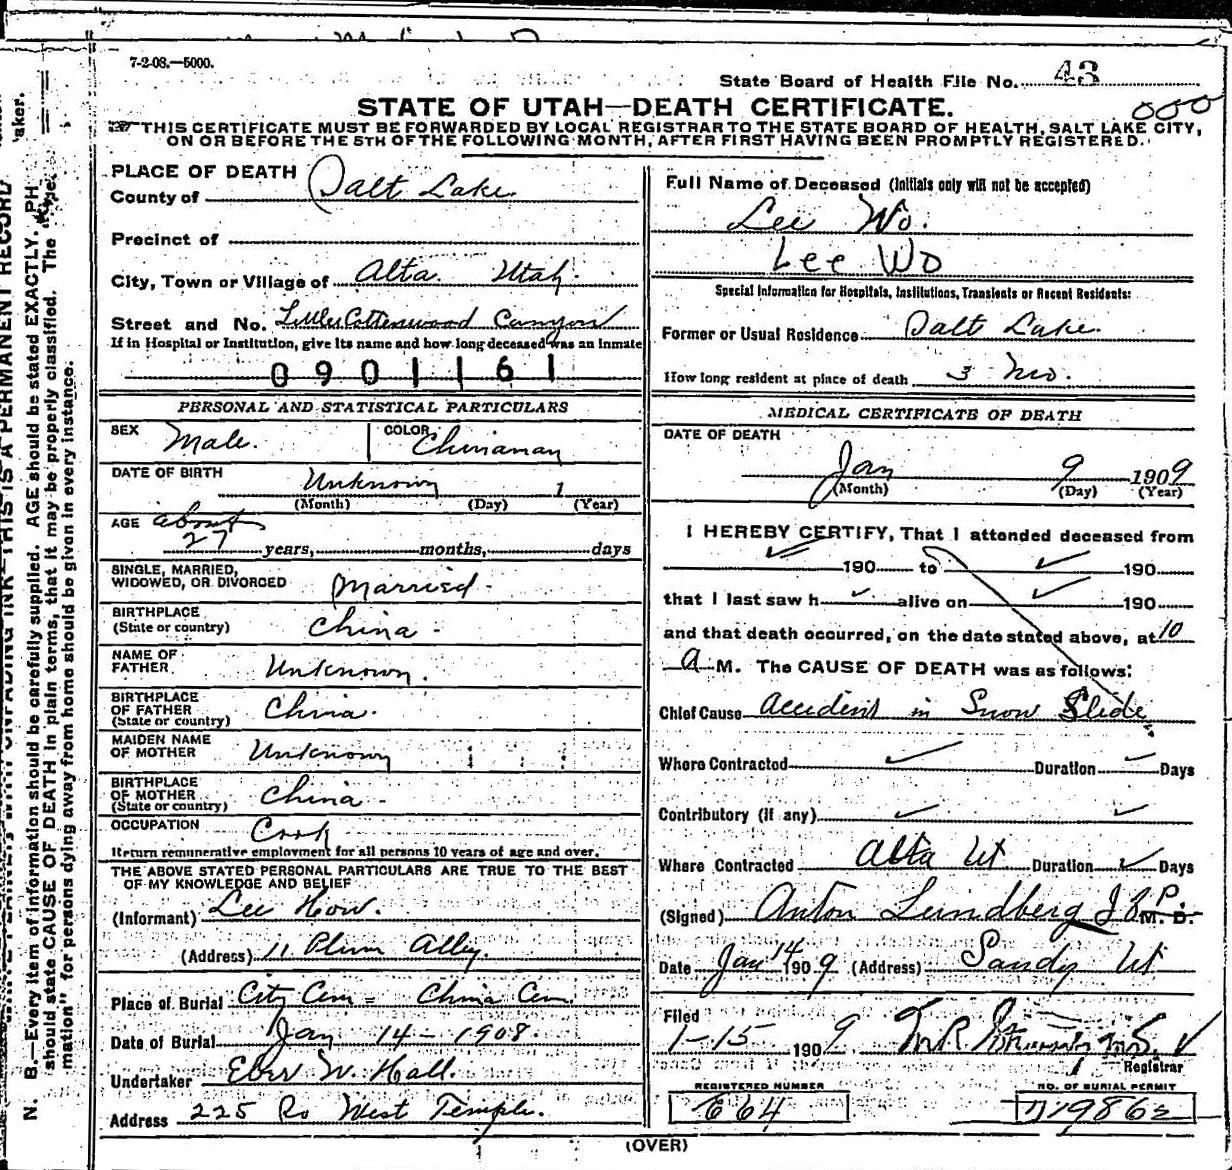 7-2-08.—5000.
State Board of Health File No. 43
STATE OF UTAH—DEATH CERTIFICATE.
000
THIS CERTIFICATE MUST BE FORWARDED BY LOCAL REGISTRAR TO THE STATE BOARD OF HEALTH, SALT LAKE CITY,
ON OR BEFORE THE 5TH OF THE FOLLOWING MONTH, AFTER FIRST HAVING BEEN PROMPTLY REGISTERED.
PLACE OF DEATH
County of Salt Lake
Precinct of
City, Town or Village of Alta. Utah.
Street and No. Little Cottenwood Canyon
If in Hospital or Institution, give its name and how long deceased was an inmate
0901161
PERSONAL AND STATISTICAL PARTICULARS
SEX Male. COLOR Chinaman
DATE OF BIRTH Unknown 1
(Month) (Day) (Year)
AGE about
27 years, months, days
SINGLE, MARRIED,
WIDOWED, OR DIVORCED Married.
BIRTHPLACE
(State or country) China -
NAME OF
FATHER Unknown.
BIRTHPLACE
OF FATHER
(State or country) China.
MAIDEN NAME
OF MOTHER Unknown
BIRTHPLACE
OF MOTHER
(State or country) China -
OCCUPATION Cook
Return remunerative employment for all persons 10 years of age and over.
THE ABOVE STATED PERSONAL PARTICULARS ARE TRUE TO THE BEST
OF MY KNOWLEDGE AND BELIEF
(Informant) Lee How.
(Address) 11 Plum Alley.
Place of Burial City Cem = China Cem
Date of Burial Jan 14 - 1908.
Undertaker Eber W. Hall.
Address 225 So West Temple.
Full Name of Deceased (Initials only will not be accepted)
Lee Wo.
Lee Wo
Special Information for Hospitals, Institutions, Transients or Recent Residents:
Former or Usual Residence Salt Lake.
How long resident at place of death 3 Mo.
MEDICAL CERTIFICATE OF DEATH
DATE OF DEATH
Jan 9 1909
(Month) (Day) (Year)
I HEREBY CERTIFY, That I attended deceased from
190 to 190
that I last saw h alive on 190
and that death occurred, on the date stated above, at 10
a M. The CAUSE OF DEATH was as follows:
Chief Cause Accident in Snow Slide
Where Contracted Duration Days
Contributory (if any)
Where Contracted Alta Ut Duration Days
(Signed) Anton Lundberg J.P. M. D.
Date Jan 14 1909 (Address) Sandy Ut
Filed
1-15 1909
Registrar
REGISTERED NUMBER
664
NO. OF BURIAL PERMIT
(OVER)
N. B.—Every item of information should be carefully supplied. AGE should be stated EXACTLY. PH
should state CAUSE OF DEATH in plain terms, that it may be properly classified. The
mation" for persons dying away from home should be given in every instance.
THIS IS A PERMANENT RECORD